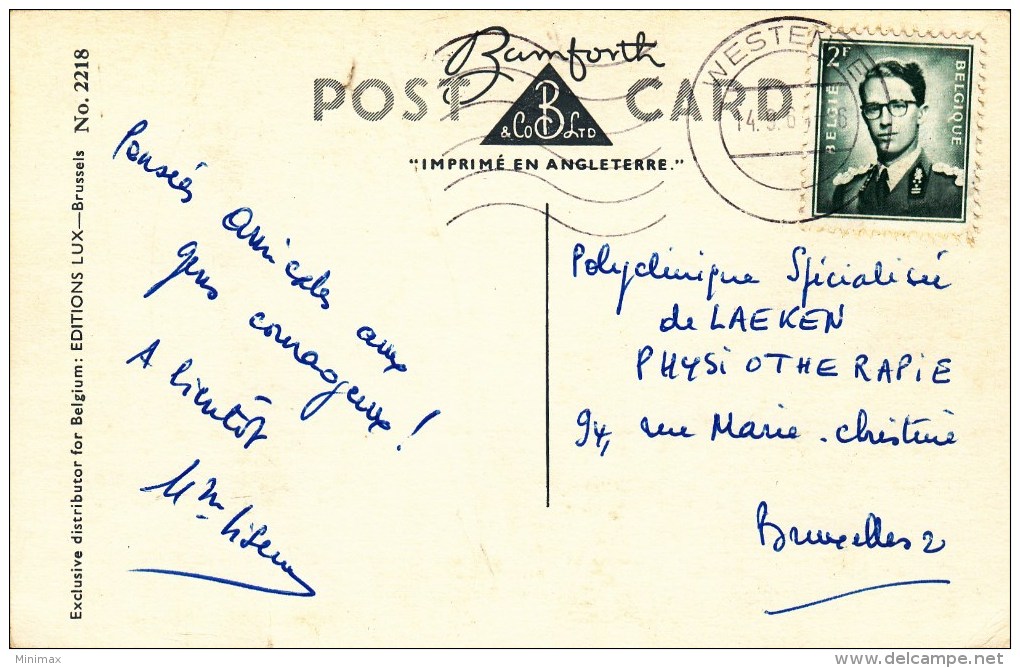 Exclusive distributor for Belgium: EDITIONS LUX—Brussels No. 2218
Bamforth
POST CARD
B
& Co LTD
"IMPRIMÉ EN ANGLETERRE."
WESTENDE
2F
BELGIË
BELGIQUE
Pensées
amicales aux
gens courageux !
A bientôt
Mme
Polyclinique Spécialisée
de LAEKEN
PHYSIOTHERAPIE
94, rue Marie-Christine
Bruxelles 2
Minimax
delcampe.net